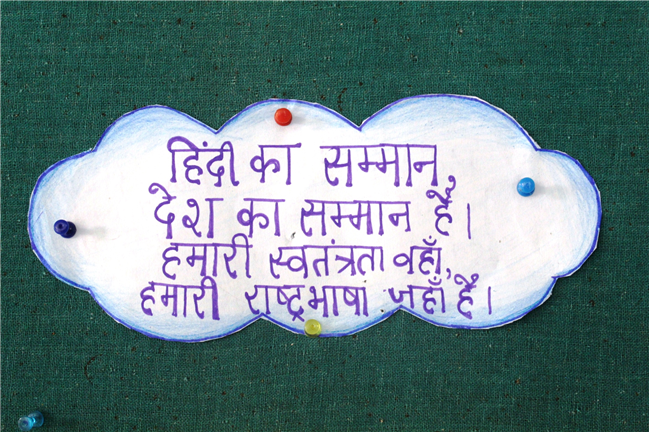 हिंदी का सम्मान,
देश का सम्मान है।
हमारी स्वतंत्रता वहाँ,
हमारी राष्ट्रभाषा जहाँ है।